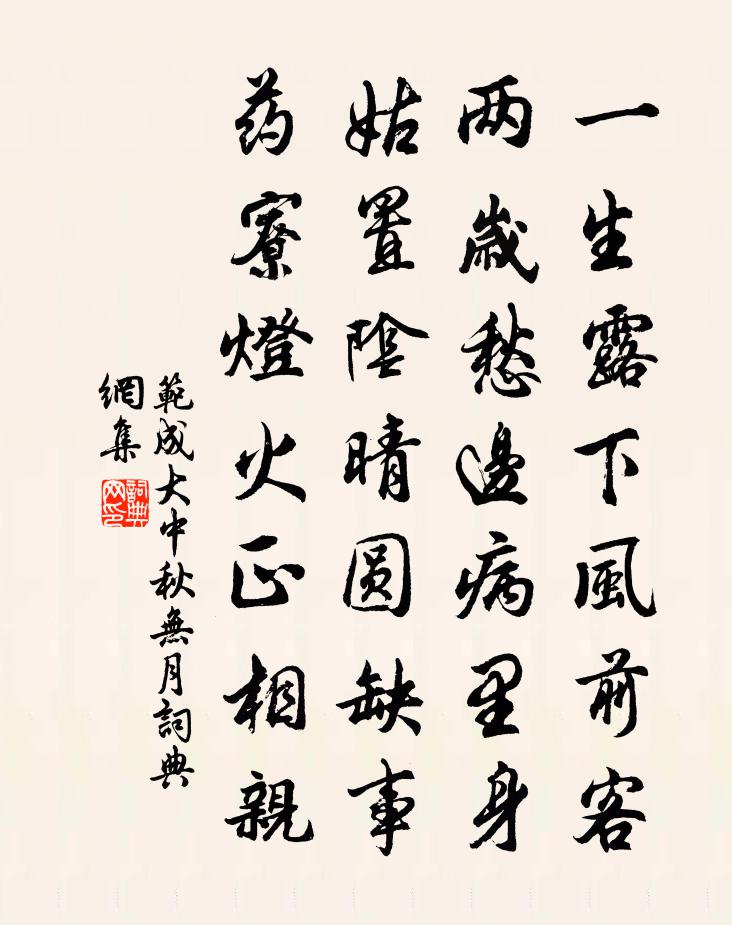 一生露下風前客
两歲愁邊病里身
姑置陰晴圓缺事
药寮燈火正相親
範成大中秋無月詞典
網集
詞典
網印